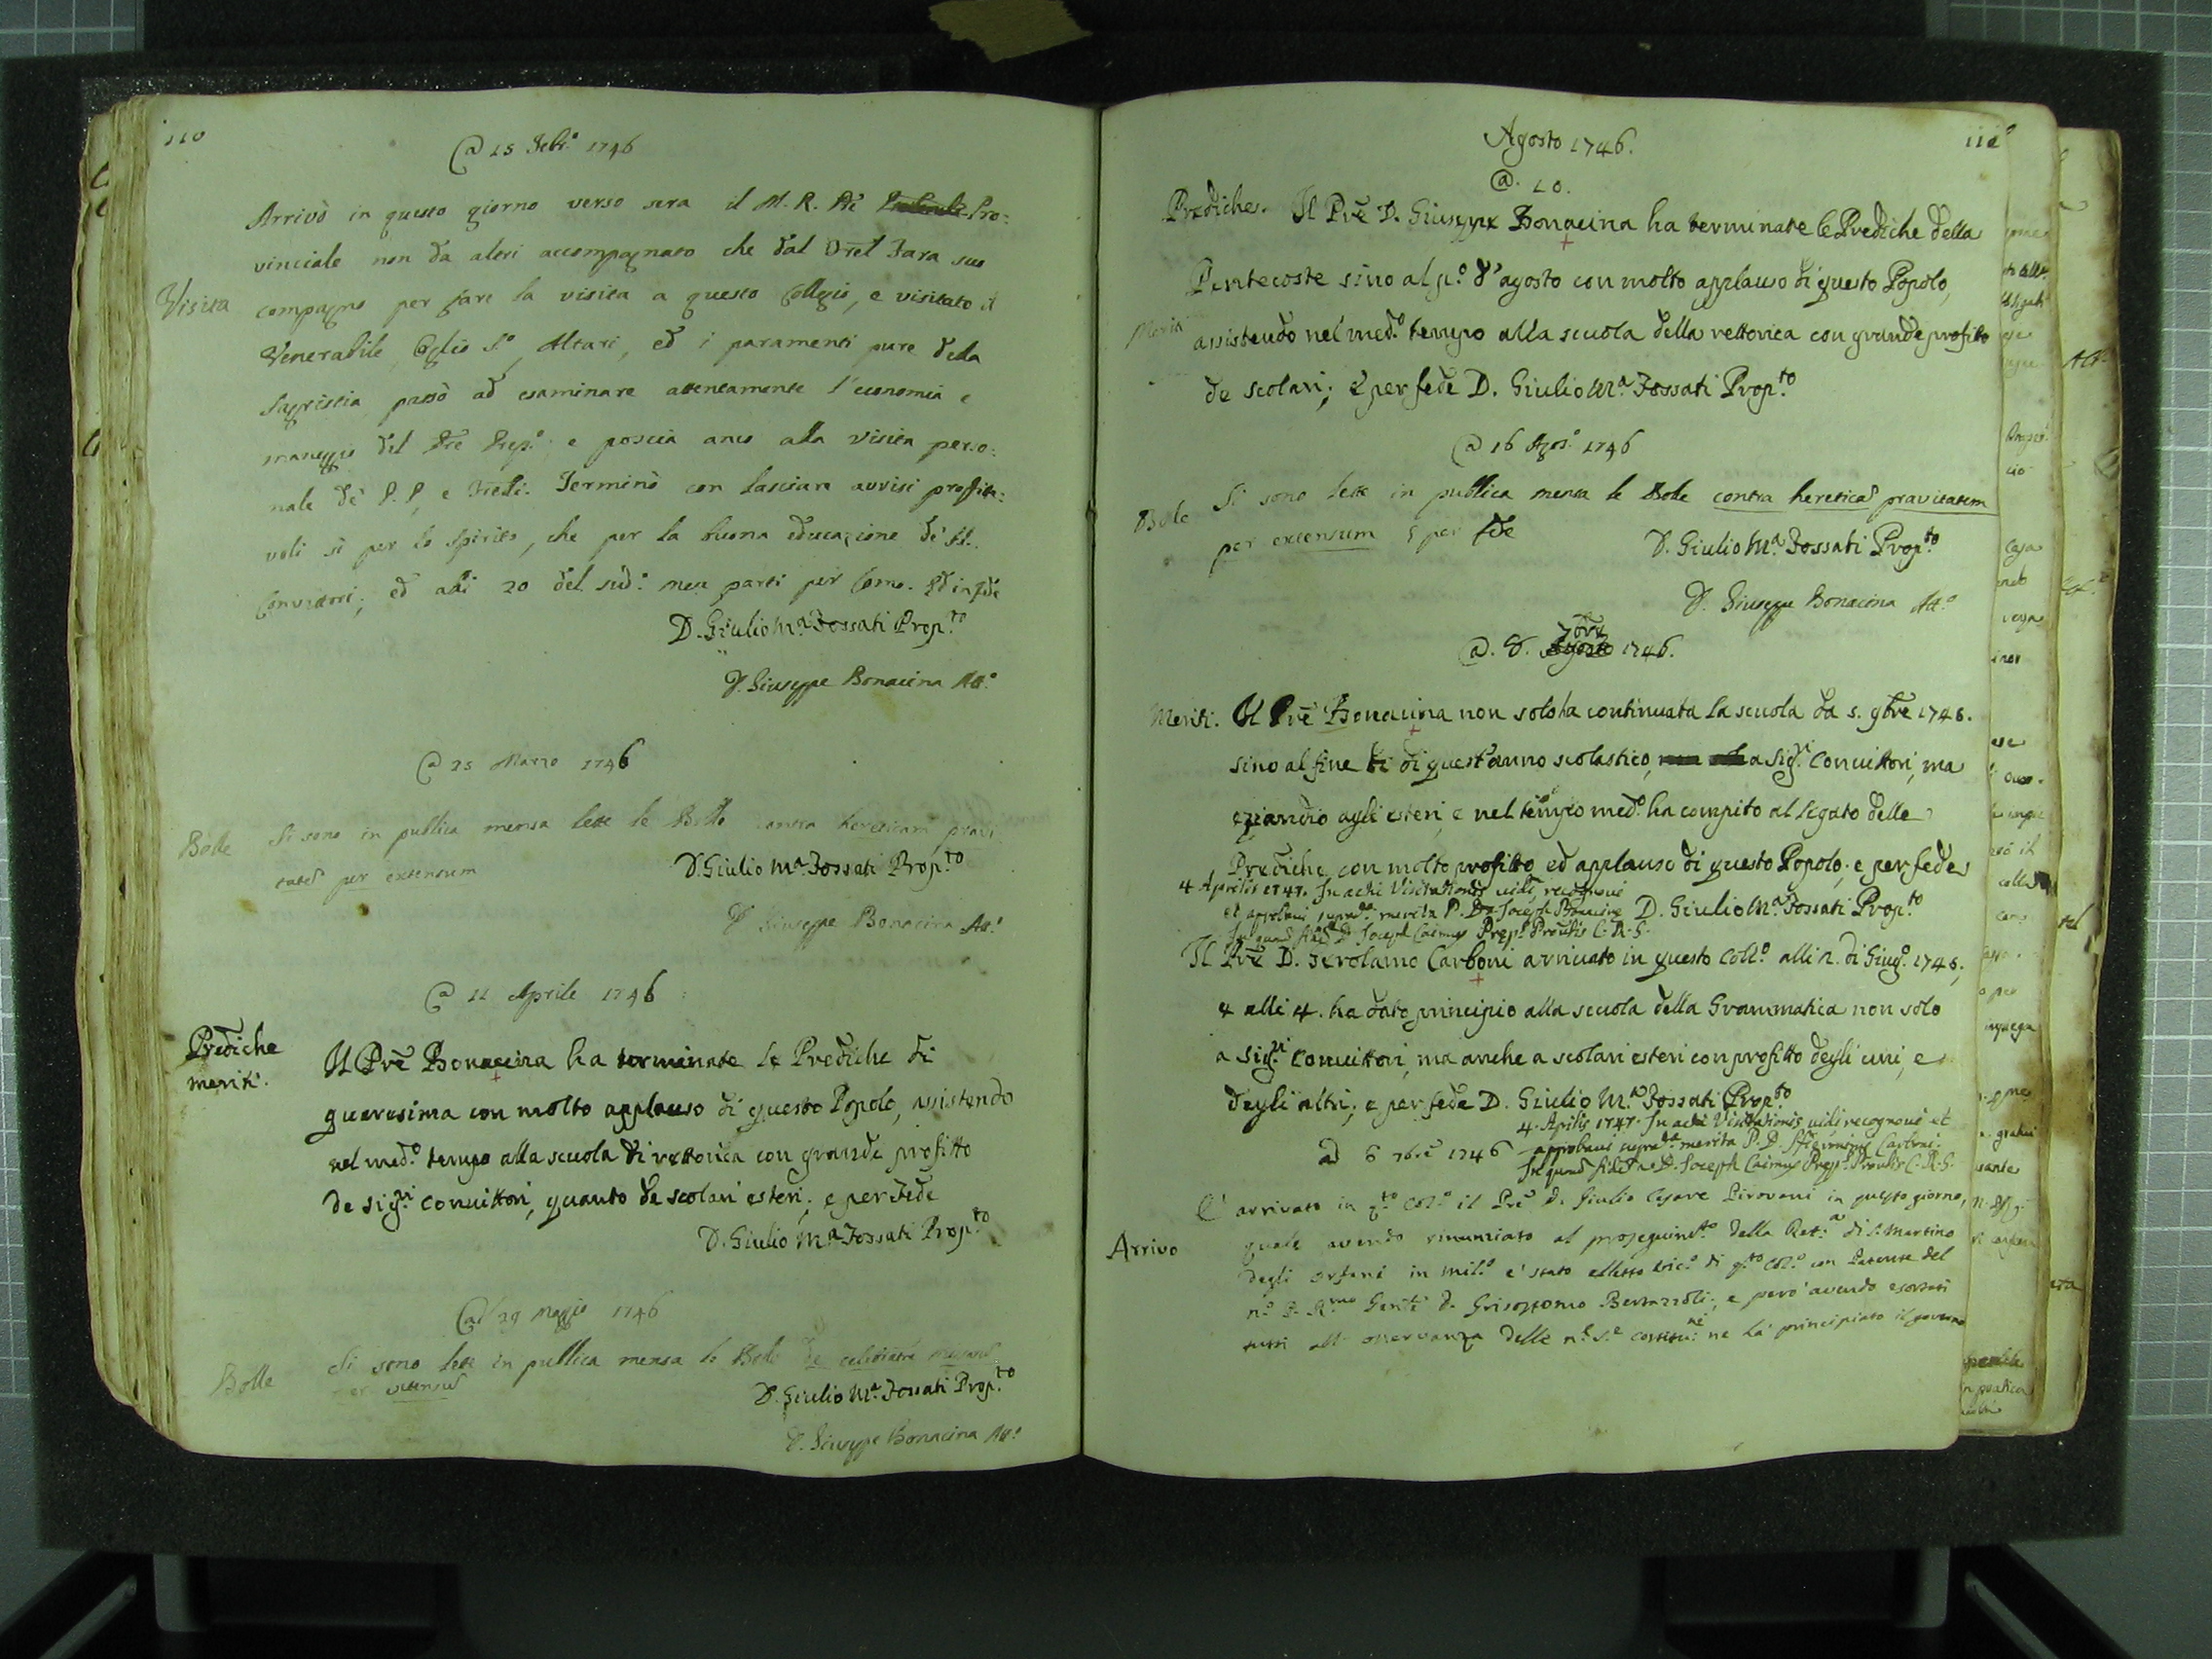 110
@ 15 Febr.o 1746
Arrivò in questo giorno verso sera il M. R. Pre Pro:
vinciale non da altri accompagnato che dal Fratel Fara suo
Visita
compagno per fare la visita a questo Collegio, e visitato il
Venerabile, Oglio S.o, Altari, ed i paramenti pure della
Sagristia passò ad esaminare attentamente l'economia e
maneggio del Pre Prep.o e poscia anco alla visita perso:
nale de' P. P. e Fratelli. Terminò con lasciare avvisi profitte:
voli sì per lo spirito, che per la buona educazione de' SS.
Convittori; ed alli 20 del sud.o mese partì per Como. Ed in fede
D. Giulio M.a Fossati Prop.to
D. Giuseppe Bonacina Att.o
@ 25 Marzo 1746
Bolle
Si sono in publica mensa lette le Bolle contra hereticam pravi
tatem per extensum
D. Giulio M.a Fossati Prop.to
D. Giuseppe Bonacina Att.o
@ 11 Aprile 1746
Prediche
meriti.
Il Pre Bonacina ha terminate le Prediche di
quaresima con molto applauso di questo Popolo, assistendo
nel med.o tempo alla scuola di rettorica con grande profitto
de sig.ri convittori, quanto de scolari esteri; e per fede
D. Giulio M.a Fossati Prop.to
@ 29 Maggio 1746
Bolle
Si sono lette in publica mensa le Bolle de celebratione missarum
per extensum
D. Giulio M.a Fossati Prop.to
D. Giuseppe Bonacina Att.o
111
Agosto 1746.
@. 10.
Prediche.
Il Pre D. Giuseppe Bonacina ha terminate le Prediche della
Pentecoste sino al p.o d'agosto con molto applauso di questo Popolo,
Meriti
assistendo nel med.o tempo alla scuola della rettorica con grande profitto
de scolari; e per fede D. Giulio M.a Fossati Prop.to
@ 16 Agos.o 1746
Bolle
Si sono lette in publica mensa le Bolle contra hereticam pravitatem
per extensum e per fede
D. Giulio M.a Fossati Prop.to
D. Giuseppe Bonacina Att.o
@. 8. 7bre 1746.
Meriti.
Il Pre Bonacina non solo ha continuata la scuola da 5. 9bre 1745.
sino al fine di quest'anno scolastico, a Sig.ri Convittori, ma
eziandio agli esteri, e nel tempo med.o ha compito al legato delle
Prediche con molto profitto, ed applauso di questo Popolo; e per fede
4 Aprilis 1747. In actu Visitationis vidi, recognovi
et approbavi suprad.a merita P. D. Joseph Bonacina
D. Giulio M.a Fossati Prop.to
In quorum fidem D. Joseph Caimus Prep.s Prov.lis C. R. S.
Il Pre D. Gerolamo Carboni arrivato in questo Coll.o alli 2. di Giug.o 1746,
e alli 4. ha dato principio alla scuola della Grammatica non solo
a Sig.ri convittori, ma anche a scolari esteri con profitto degli uni, e
degli altri; e per fede D. Giulio M.a Fossati Prop.to
4. Aprilis 1747. In actu Visitationis vidi recognovi et
approbavi suprad.a merita P. D. Hieronimi Carboni.
In quorum fidem D. Joseph Caimus Prep.s Prov.lis C. R. S.
ad 6 7bre 1746
E' arrivato in q.to Col.o il Pre D. Giulio Cesare Pirovani in questo giorno,
Arrivo
quale avendo rinunziato al proseguim.to della Ret.a di S. Martino
degli orfani in Mil.o e' stato elletto Vic.o di q.to Col.o con Patente del
n.o P. R.mo Gen.le D. Grisostomo Bertazzoli; e però avendo esortati
tutti all' osservanza delle n.e S.e costitu.ni ne hà principiato il governo